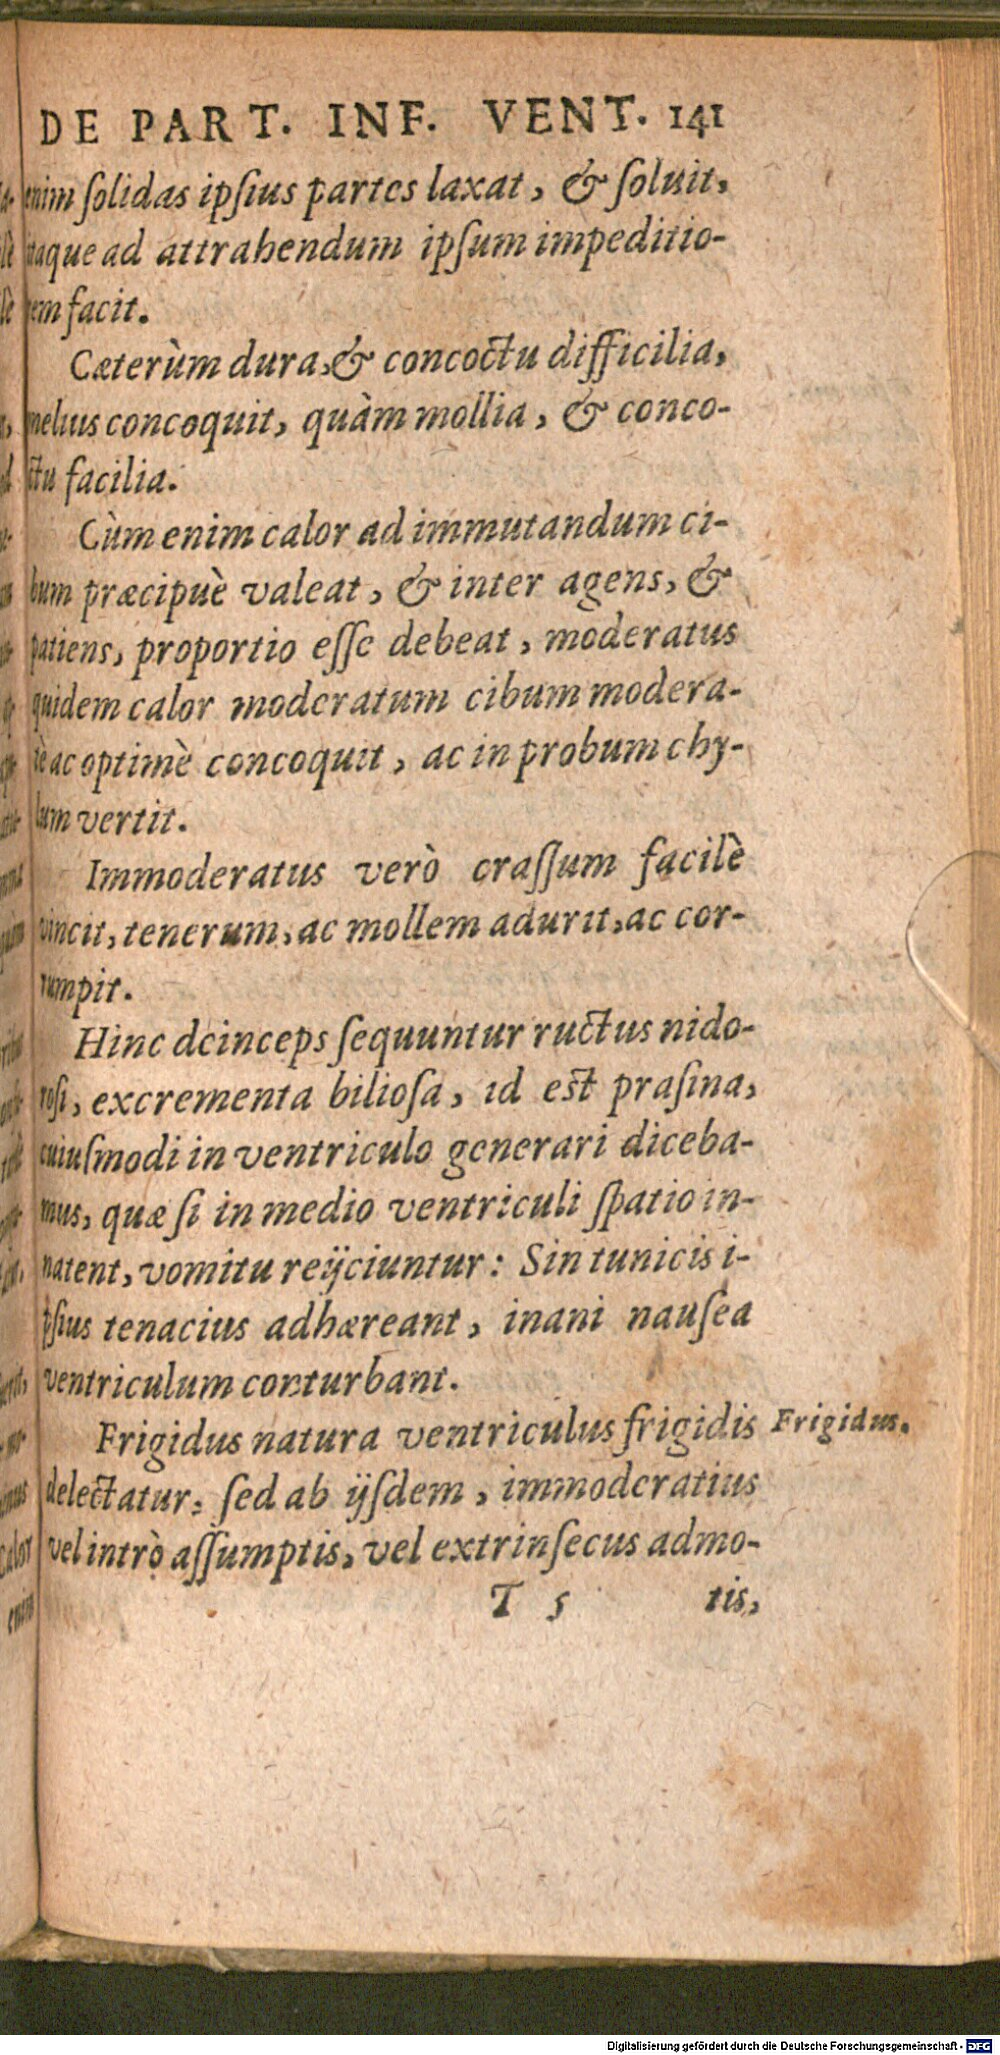 DE PART. INF. VENT. 141
enim ſolidas ipſius partes laxat, & ſoluit,
itaque ad attrahendum ipſum impeditio-
nem facit.
Cæterùm dura, & concoctu difficilia,
melius concoquit, quàm mollia, & conco-
ctu facilia.
Cùm enim calor ad immutandum ci-
bum præcipuè valeat, & inter agens, &
patiens, proportio eſſe debeat, moderatus
quidem calor moderatum cibum modera-
tè ac optimè concoquit, ac in probum chy-
lum vertit.
Immoderatus verò craſſum facilè
vincit, tenerum, ac mollem adurit, ac cor-
rumpit.
Hinc deinceps ſequuntur ructus nido-
roſi, excrementa bilioſa, id est praſina,
cuiuſmodi in ventriculo generari diceba-
mus, quæ ſi in medio ventriculi ſpatio in-
natent, vomitu reijciuntur: Sin tunicis i-
pſius tenacius adhæreant, inani nauſea
ventriculum conturbant.
Frigidus natura ventriculus frigidis
Frigidus.
delectatur: ſed ab ijſdem, immoderatius
vel intrò aſſumptis, vel extrinſecus admo-
T 5 tis,
Digitalisierung gefördert durch die Deutsche Forschungsgemeinschaft - DFG